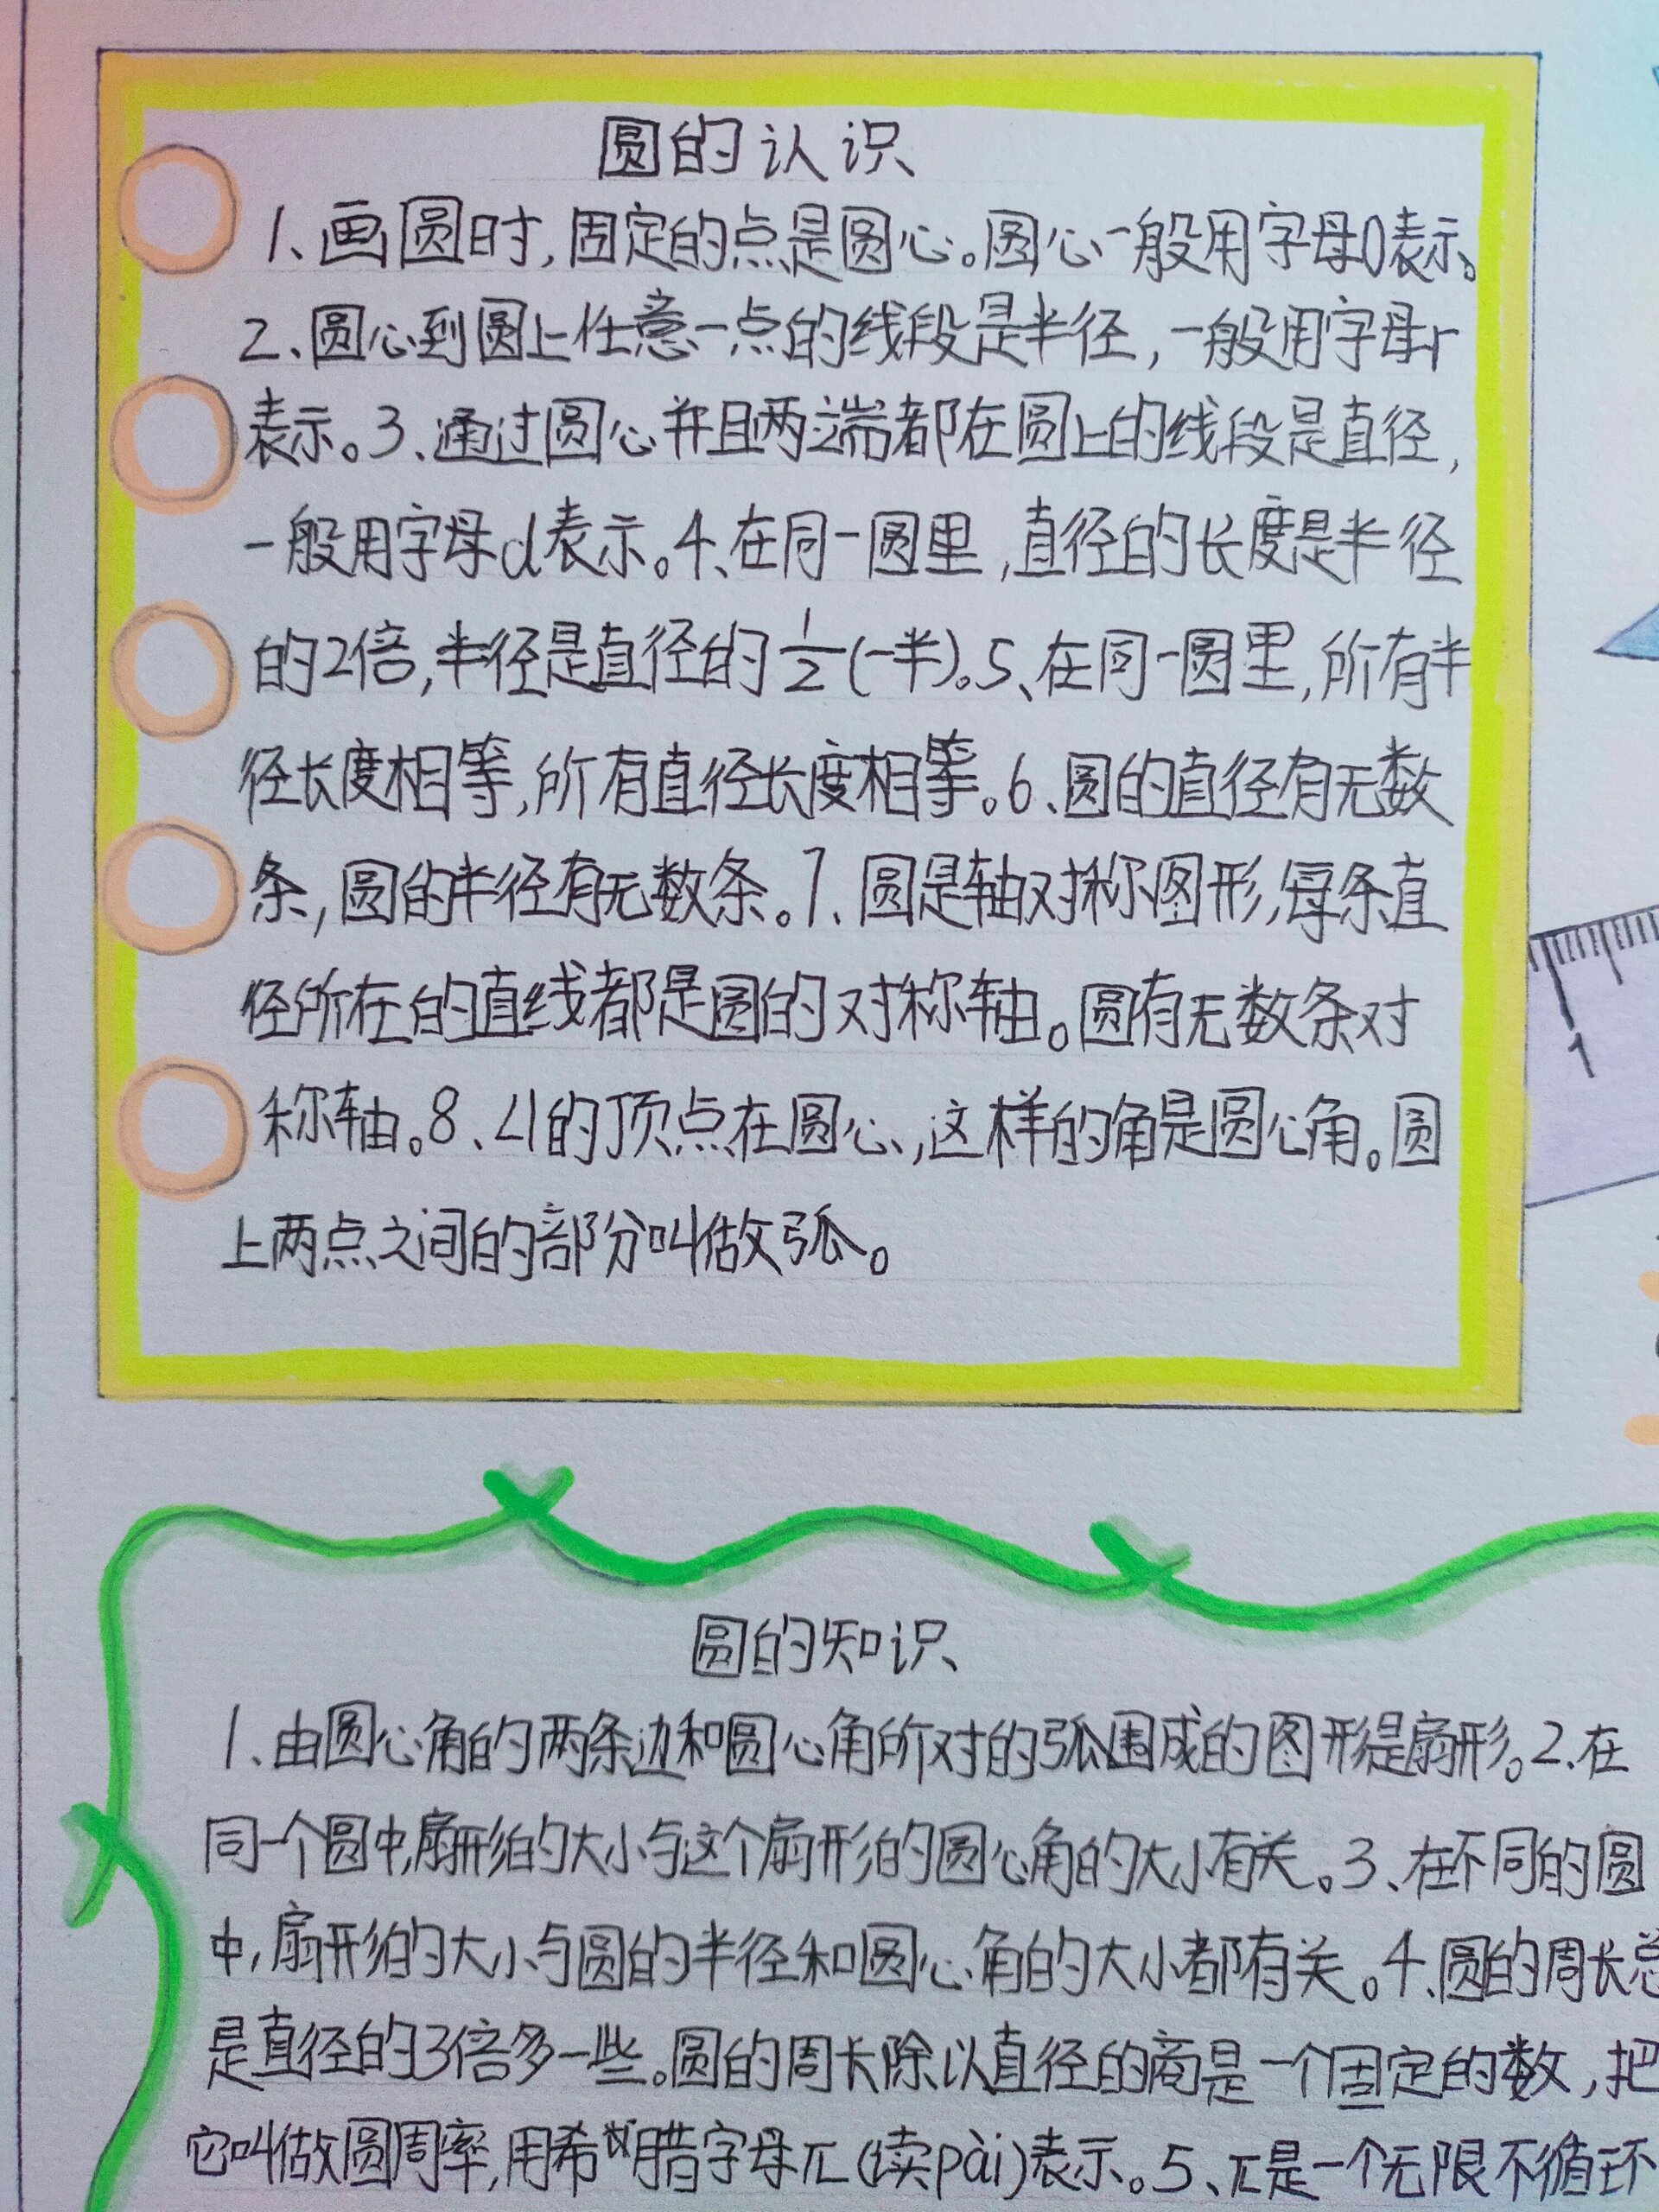 圆的认识
1、画圆时,固定的点是圆心。圆心一般用字母O表示。
2、圆心到圆上任意一点的线段是半径,一般用字母r
表示。3、通过圆心并且两端都在圆上的线段是直径,
一般用字母d表示。4、在同一圆里,直径的长度是半径
的2倍,半径是直径的1/2(一半)。5、在同一圆里,所有半
径长度相等,所有直径长度相等。6、圆的直径有无数
条,圆的半径有无数条。7、圆是轴对称图形,每条直
径所在的直线都是圆的对称轴。圆有无数条对
称轴。8、∠1的顶点在圆心,这样的角是圆心角。圆
上两点之间的部分叫做弧。
1
圆的知识
1、由圆心角的两条边和圆心角所对的弧围成的图形是扇形。2、在
同一个圆中,扇形的大小与这个扇形的圆心角的大小有关。3、在不同的圆
中,扇形的大小与圆的半径和圆心角的大小都有关。4、圆的周长总
是直径的3倍多一些。圆的周长除以直径的商是一个固定的数,把
它叫做圆周率,用希腊字母π(读pài)表示。5、π是一个无限不循环